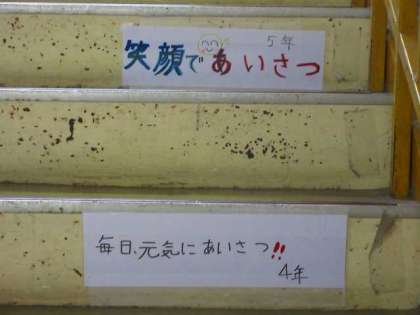 5年
笑顔であいさつ
毎日、元気にあいさつ!!
4年